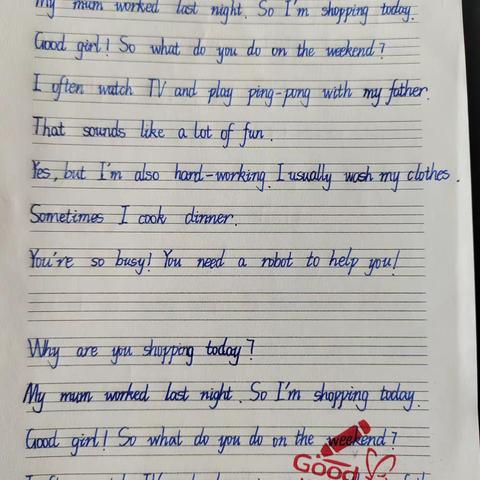 My mum worked last night. So I'm shopping today.
Good girl! So what do you do on the weekend?
I often watch TV and play ping-pong with my father.
That sounds like a lot of fun.
Yes, but I'm also hard-working. I usually wash my clothes.
Sometimes I cook dinner.
You're so busy! You need a robot to help you!
Why are you shopping today?
My mum worked last night. So I'm shopping today.
Good girl! So what do you do on the weekend?
Good